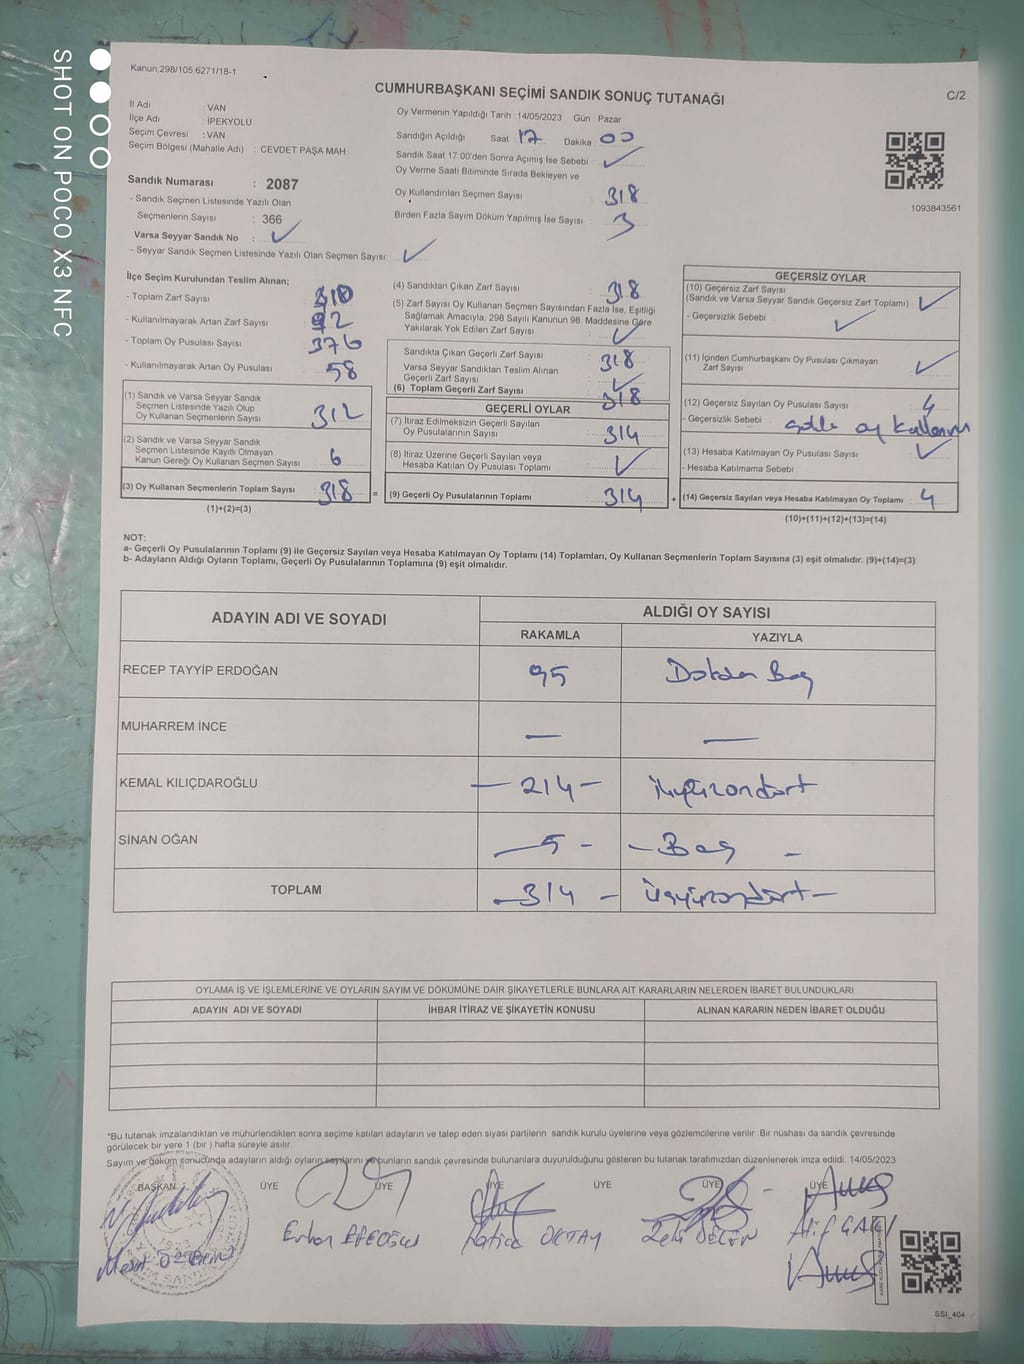 SHOT ON POCO X3 NFC
Kanun;298/105,6271/18-1
CUMHURBAŞKANI SEÇİMİ SANDIK SONUÇ TUTANAĞI
C/2
İl Adı : VAN
İlçe Adı : İPEKYOLU
Seçim Çevresi : VAN
Seçim Bölgesi (Mahalle Adı) : CEVDET PAŞA MAH.
Sandık Numarası : 2087
- Sandık Seçmen Listesinde Yazılı Olan
Seçmenlerin Sayısı : 366
Varsa Seyyar Sandık No : ✓
- Seyyar Sandık Seçmen Listesinde Yazılı Olan Seçmen Sayısı: ✓
Oy Vermenin Yapıldığı Tarih : 14/05/2023 Gün : Pazar
Sandığın Açıldığı Saat 17 Dakika 00
Sandık Saat 17:00'den Sonra Açımış İse Sebebi : ✓
Oy Verme Saati Bitiminde Sırada Bekleyen ve
Oy Kullandırılan Seçmen Sayısı : 318
Birden Fazla Sayım Döküm Yapılmış İse Sayısı : 3
1093843561
İlçe Seçim Kurulundan Teslim Alınan;
- Toplam Zarf Sayısı
- Kullanılmayarak Artan Zarf Sayısı
- Toplam Oy Pusulası Sayısı : 376
- Kullanılmayarak Artan Oy Pusulası : 58
(1) Sandık ve Varsa Seyyar Sandık
Seçmen Listesinde Yazılı Olup
Oy Kullanan Seçmenlerin Sayısı : 312
(2) Sandık ve Varsa Seyyar Sandık
Seçmen Listesinde Kayıtlı Olmayan
Kanun Gereği Oy Kullanan Seçmen Sayısı : 6
(3) Oy Kullanan Seçmenlerin Toplam Sayısı : 318 =
(1)+(2)=(3)
(4) Sandıktan Çıkan Zarf Sayısı : 318
(5) Zarf Sayısı Oy Kullanan Seçmen Sayısından Fazla İse, Eşitliği
Sağlamak Amacıyla; 298 Sayılı Kanunun 98. Maddesine Göre
Yakılarak Yok Edilen Zarf Sayısı : ✓
Sandıkta Çıkan Geçerli Zarf Sayısı : 318
Varsa Seyyar Sandıktan Teslim Alınan
Geçerli Zarf Sayısı : ✓
(6) Toplam Geçerli Zarf Sayısı : 318
GEÇERLİ OYLAR
(7) İtiraz Edilmeksizin Geçerli Sayılan
Oy Pusulalarının Sayısı : 314
(8) İtiraz Üzerine Geçerli Sayılan veya
Hesaba Katılan Oy Pusulası Toplamı : ✓
(9) Geçerli Oy Pusulalarının Toplamı : 314 +
GEÇERSİZ OYLAR
(10) Geçersiz Zarf Sayısı
(Sandık ve Varsa Seyyar Sandık Geçersiz Zarf Toplamı) : ✓
- Geçersizlik Sebebi : ✓
(11) İçinden Cumhurbaşkanı Oy Pusulası Çıkmayan
Zarf Sayısı : ✓
(12) Geçersiz Sayılan Oy Pusulası Sayısı : 4
- Geçersizlik Sebebi : oy kullanım
(13) Hesaba Katılmayan Oy Pusulası Sayısı : ✓
- Hesaba Katılmama Sebebi
(14) Geçersiz Sayılan veya Hesaba Katılmayan Oy Toplamı : 4
(10)+(11)+(12)+(13)=(14)
NOT:
a- Geçerli Oy Pusulalarının Toplamı (9) ile Geçersiz Sayılan veya Hesaba Katılmayan Oy Toplamı (14) Toplamları, Oy Kullanan Seçmenlerin Toplam Sayısına (3) eşit olmalıdır. (9)+(14)=(3)
b- Adayların Aldığı Oyların Toplamı, Geçerli Oy Pusulalarının Toplamına (9) eşit olmalıdır.
ADAYIN ADI VE SOYADI
ALDIĞI OY SAYISI
RAKAMLA YAZIYLA
RECEP TAYYİP ERDOĞAN 95 Doksan Beş
MUHARREM İNCE — —
KEMAL KILIÇDAROĞLU — 214 – ikiyüzondört
SİNAN OĞAN — 5 - – Beş –
TOPLAM – 314 – üçyüzondört –
OYLAMA İŞ VE İŞLEMLERİNE VE OYLARIN SAYIM VE DÖKÜMÜNE DAİR ŞİKAYETLERLE BUNLARA AİT KARARLARIN NELERDEN İBARET BULUNDUKLARI
ADAYIN ADI VE SOYADI İHBAR İTİRAZ VE ŞİKAYETİN KONUSU ALINAN KARARIN NEDEN İBARET OLDUĞU
*Bu tutanak imzalandıktan ve mühürlendikten sonra seçime katılan adayların ve talep eden siyasi partilerin sandık kurulu üyelerine veya gözlemcilerine verilir. Bir nüshası da sandık çevresinde
görülecek bir yere 1 (bir ) hafta süreyle asılır.
Sayım ve döküm sonucunda adayların aldığı oyların sayılarını ve bunların sandık çevresinde bulunanlara duyurulduğunu gösteren bu tutanak tarafımızdan düzenlenerek imza edildi. 14/05/2023
BAŞKAN ÜYE ÜYE ÜYE ÜYE ÜYE ÜYE
Mesut Erhan EFEOĞLU Hatice OKTAY Zeki Atif
SSİ_404